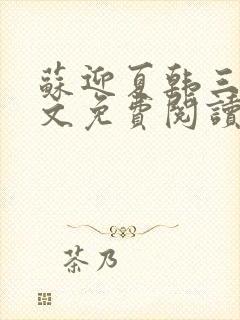 蘇迎夏韩三
文免費閱讀
茶乃